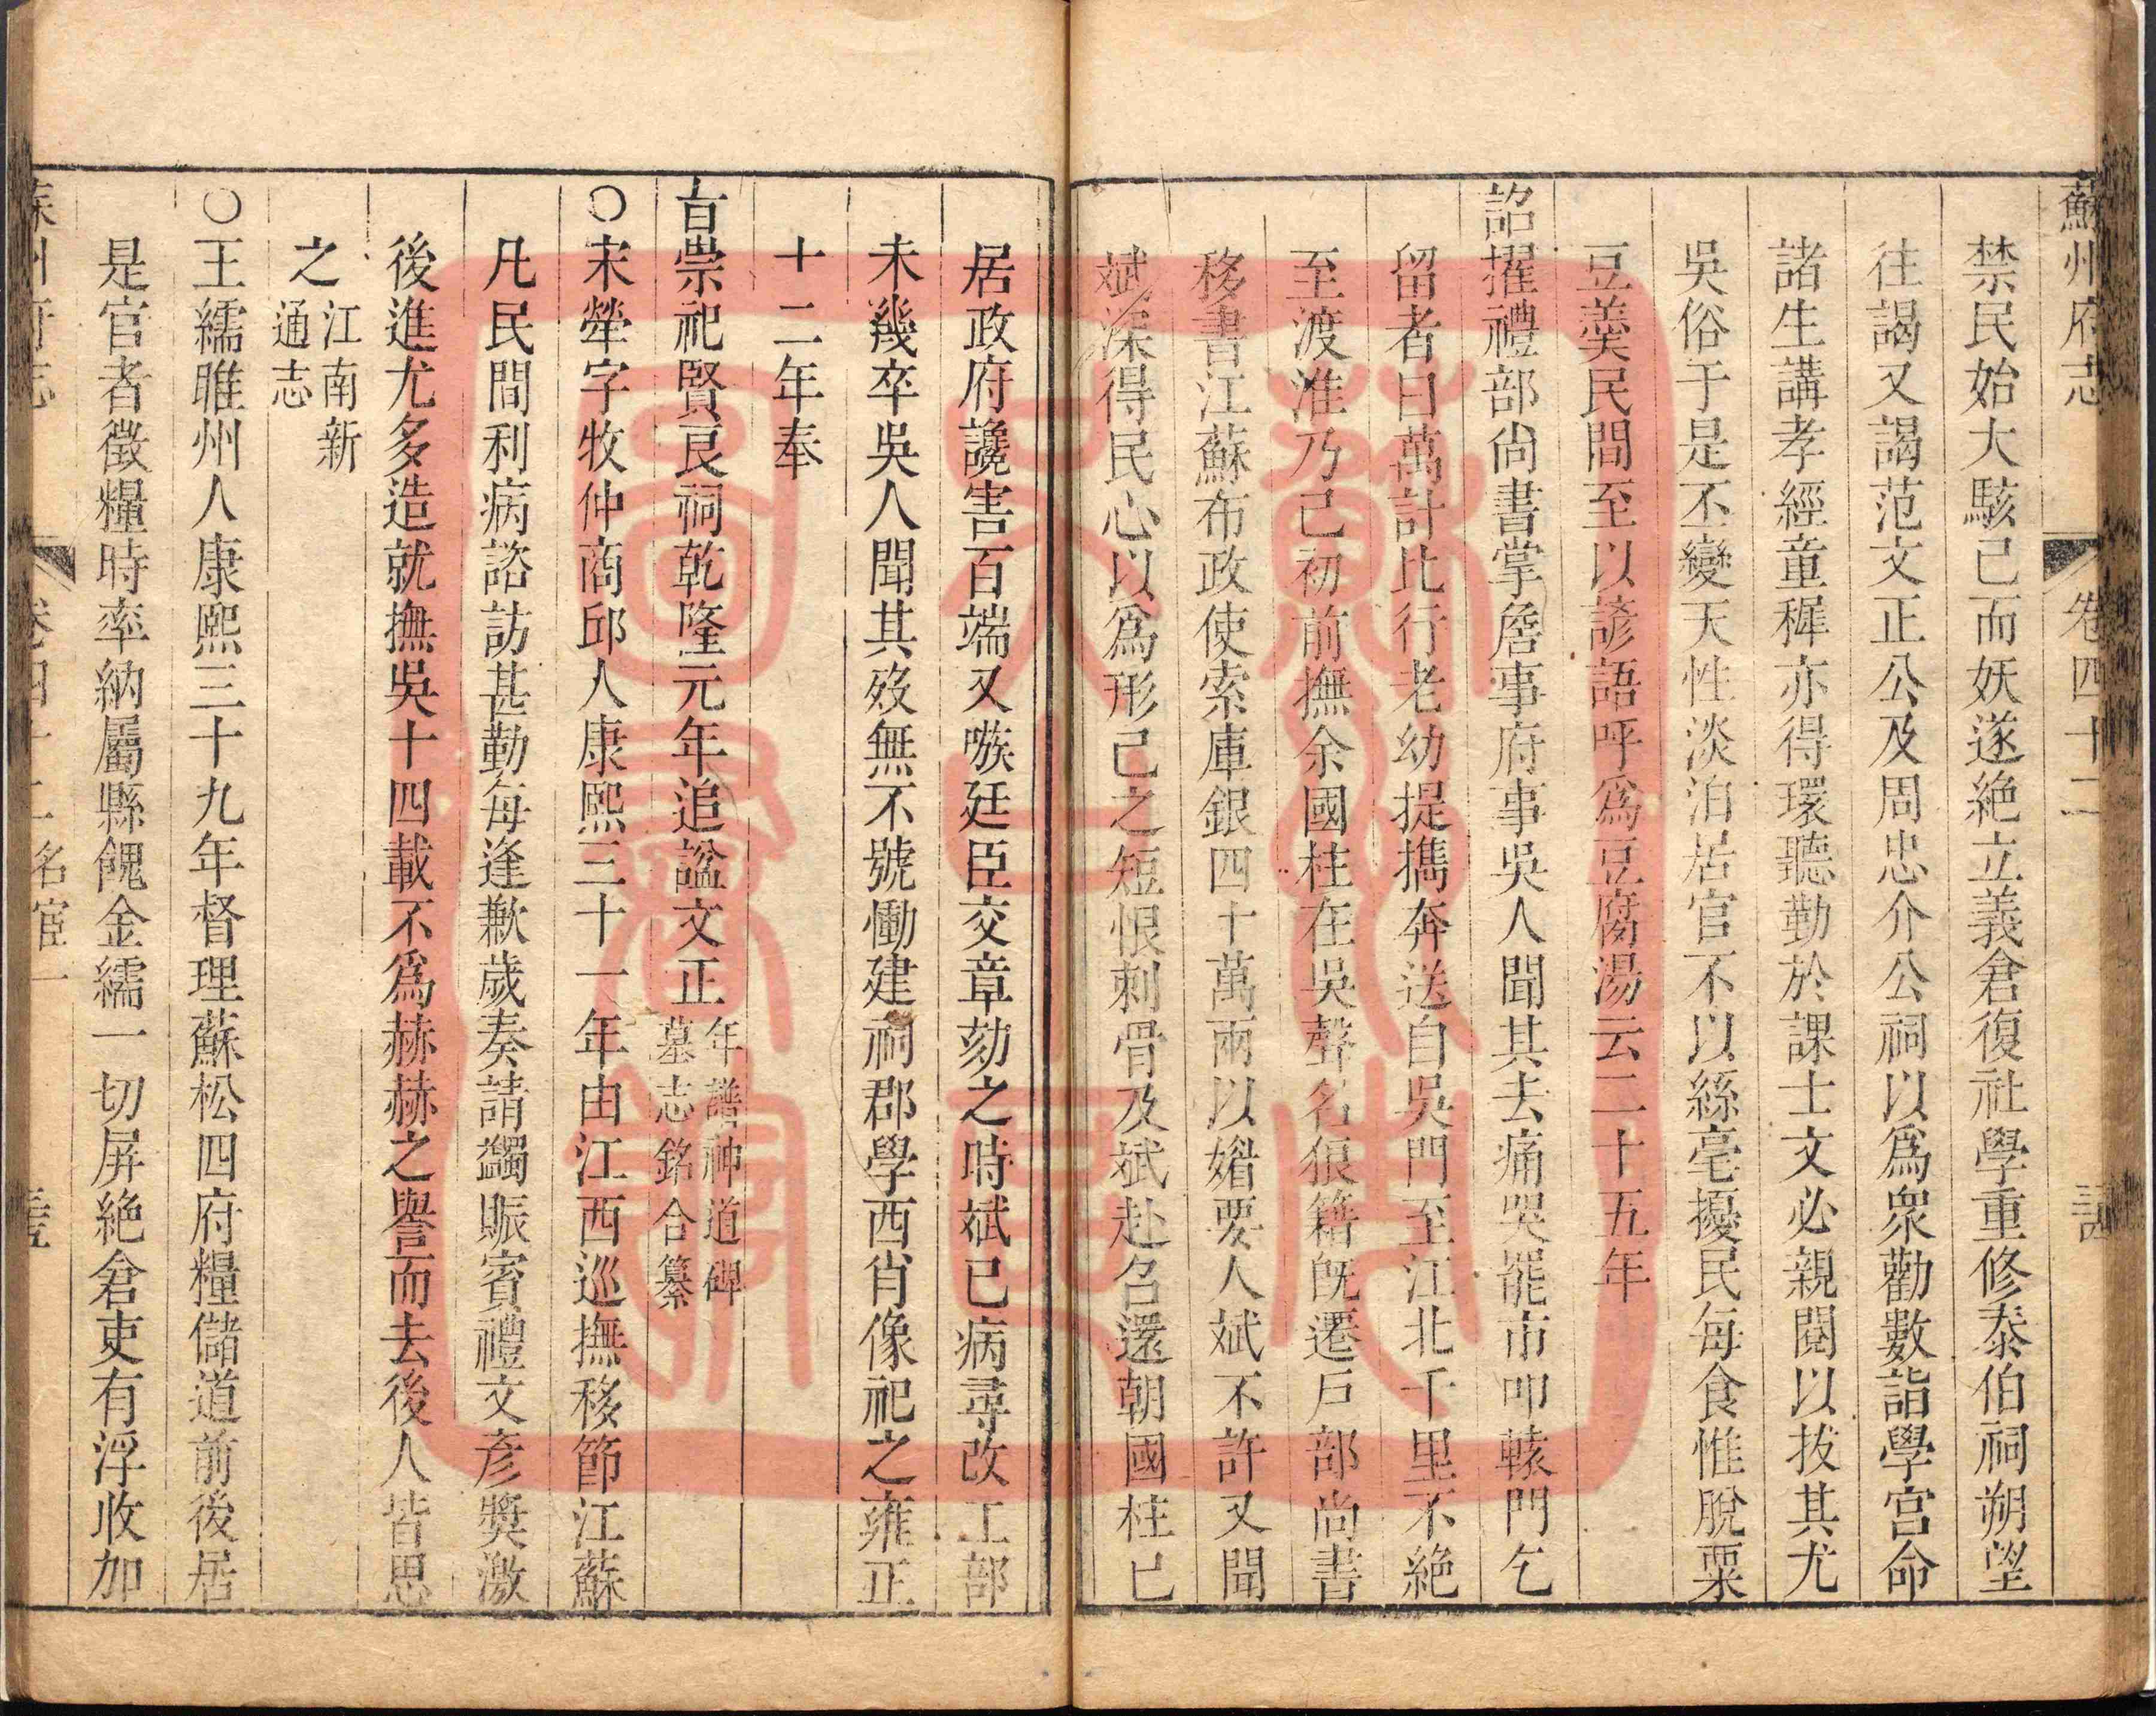 蘇州府志 卷四十二
禁民始大駭已而妖遂絶立義倉復社學重修泰伯祠朔望
往謁又謁范文正公及周忠介公祠以爲衆勸數詣學宮命
諸生講孝經童穉亦得環聽勤於課士文必親閱以拔其尤
吳俗于是丕變天性淡泊居官不以絲毫擾民每食惟脫粟
豆羹民間至以諺語呼爲豆腐湯云二十五年
詔擢禮部尚書掌詹事府事吳人聞其去痛哭罷市叩轅門乞
留者日萬計比行老幼提攜奔送自吳門至江北千里不絶
至渡淮乃已初前撫余國柱在吳聲名狼籍旣遷戸部尚書
移書江蘇布政使索庫銀四十萬兩以媚要人斌不許又聞
斌深得民心以爲形己之短恨刺骨及斌赴召還朝國柱已
居政府讒害百端又嗾廷臣交章劾之時斌已病尋改工部
未幾卒吳人聞其歿無不號慟建祠郡學西肖像祀之雍正
十二年奉
旨崇祀賢良祠乾隆元年追諡文正年譜神道碑
墓志銘合纂
○宋犖字牧仲商邱人康熙三十一年由江西巡撫移節江蘇
凡民間利病諮訪甚勤每逢歉歲奏請蠲賑賓禮文彥獎激
後進尤多造就撫吳十四載不爲赫赫之譽而去後人皆思
之江南新
通志
○王繻睢州人康熙三十九年督理蘇松四府糧儲道前後居
是官者徵糧時率納屬縣餽金繻一切屏絶倉吏有浮收加
名宦一